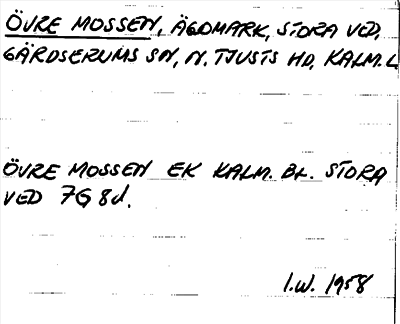 ÖVRE MOSSEN, ÄGOMARK, STORA VED,
GÄRDSERUMS SN, N. TJUSTS HD, KALM. L
ÖVRE MOSSEN EK KALM. BL. STORA
VED 7G 8d.
I.W. 1958